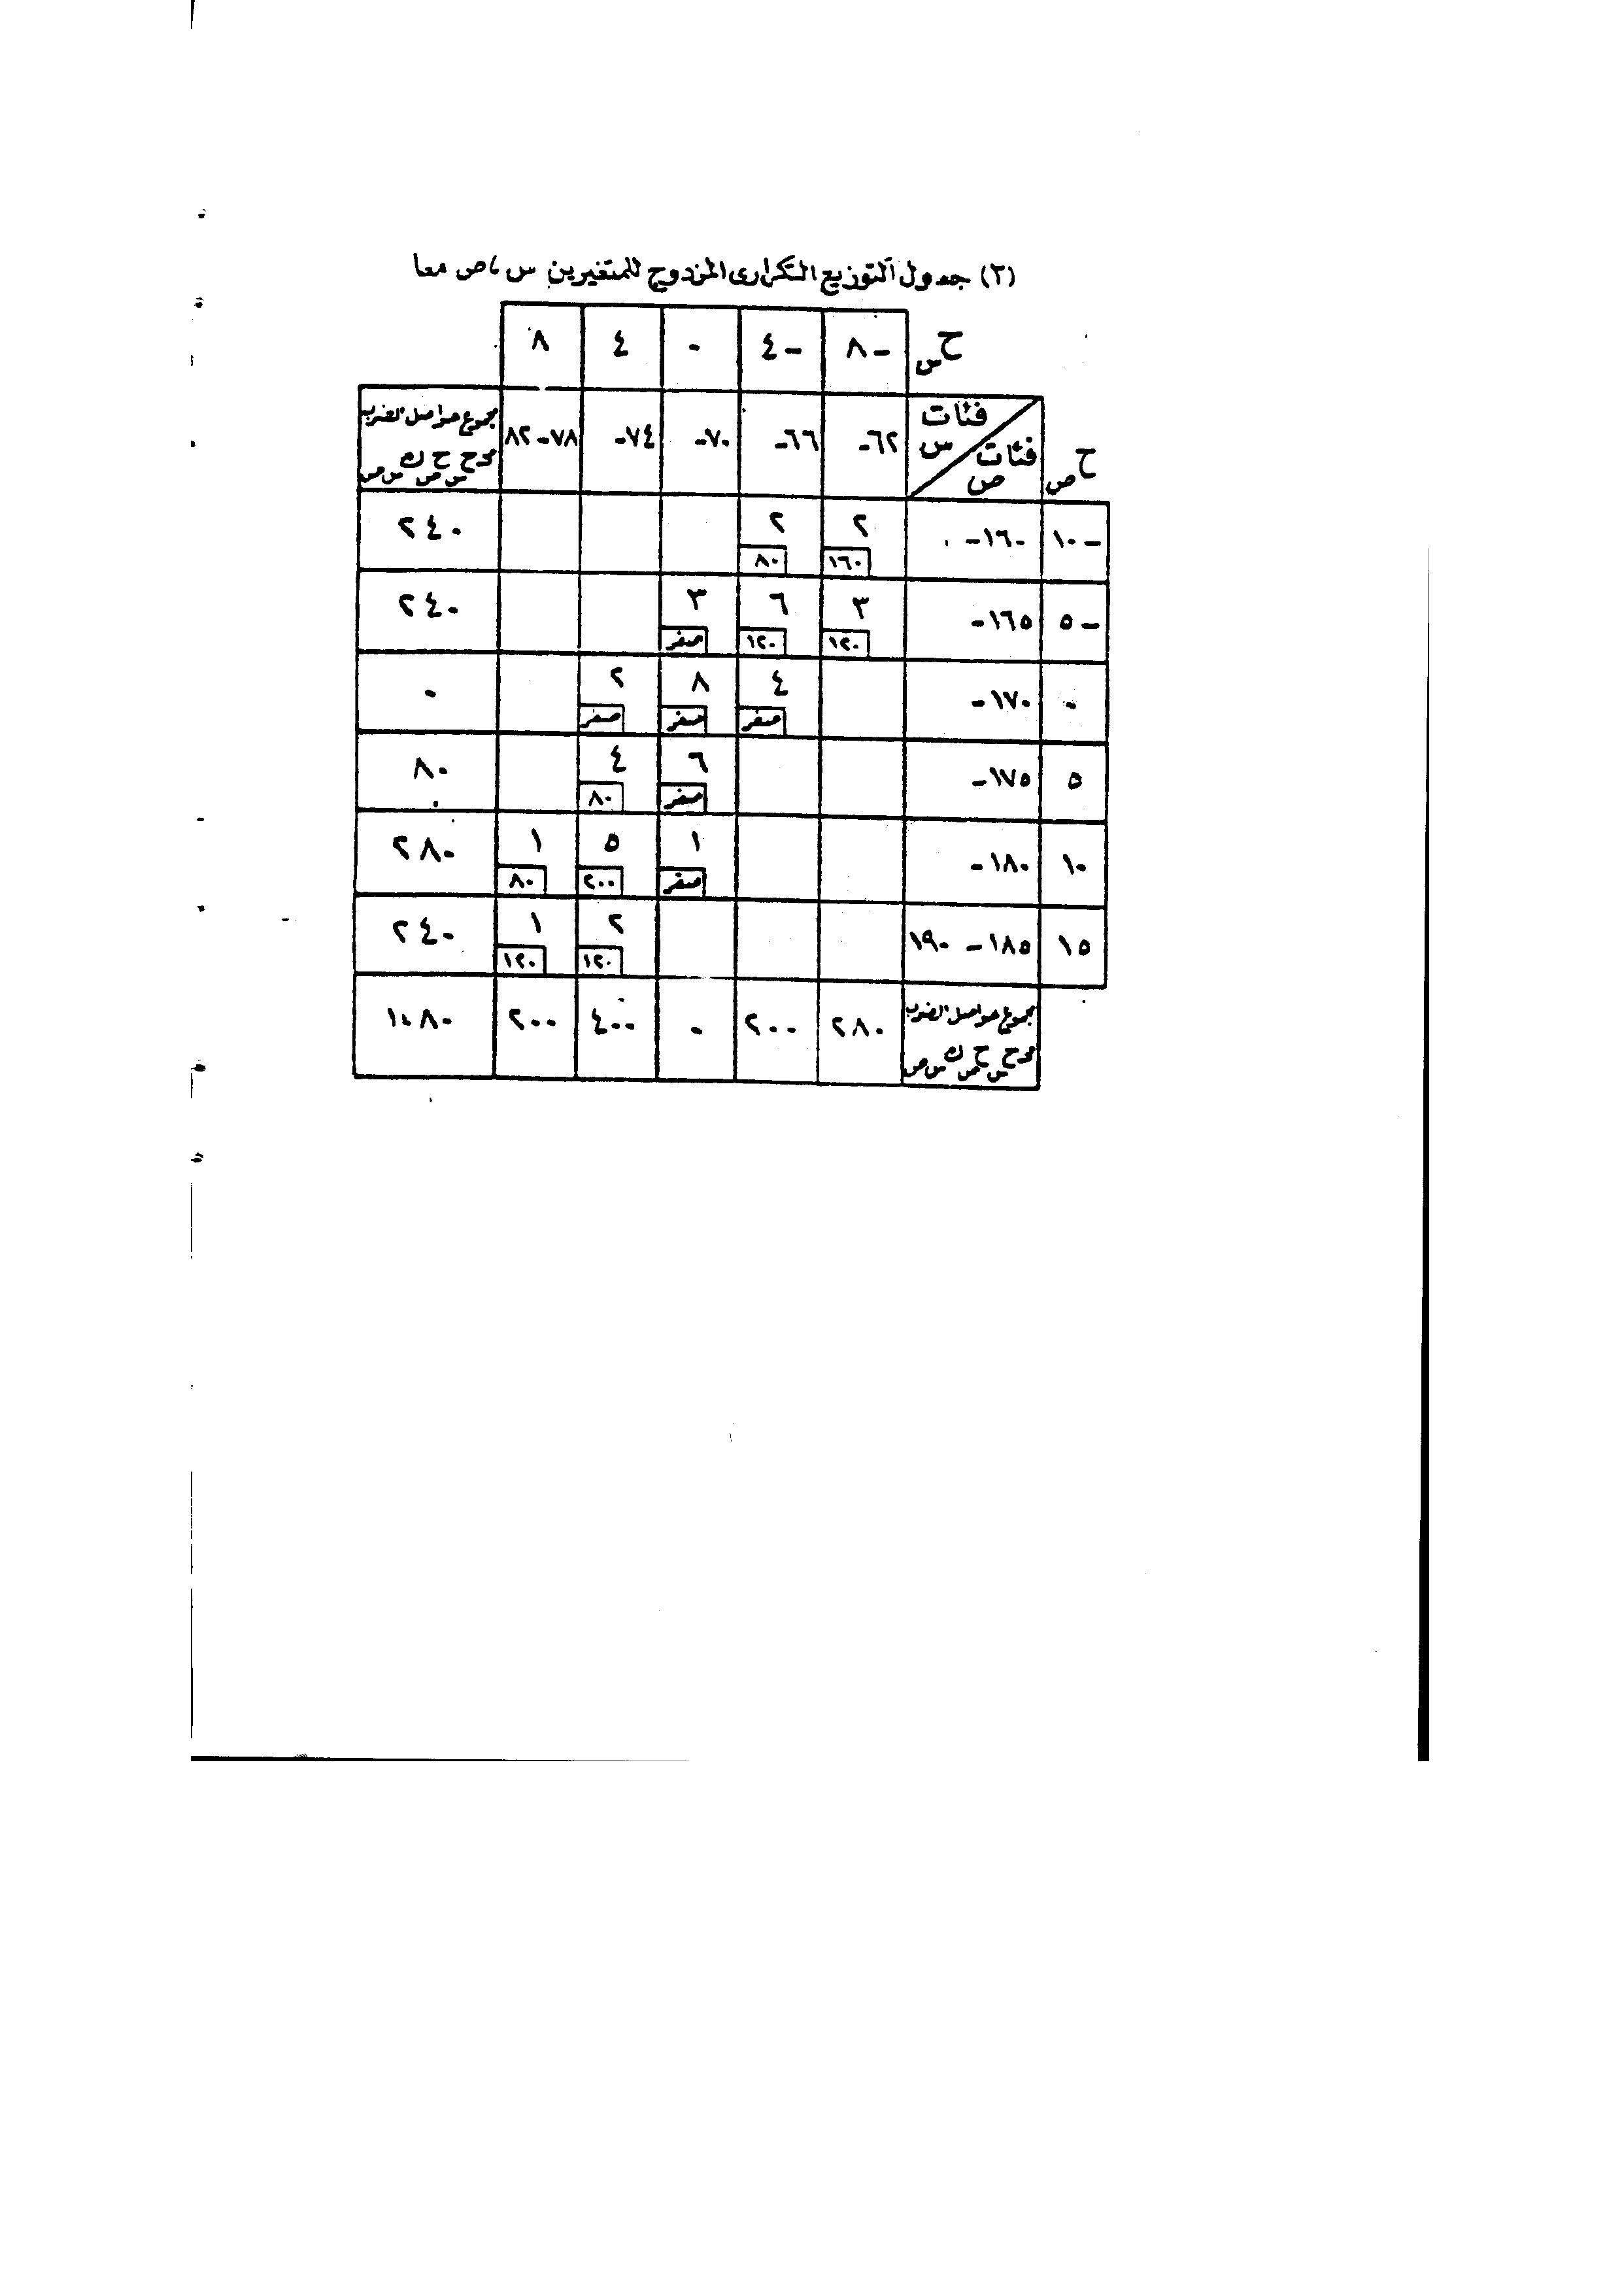 (٣) جدول التوزيع التكرارى المزدوج للمتغيرين س ، ص معا
ح س -٨ -٤ ٠ ٤ ٨
ح ص فئات س فئات ص ٦٢- ٦٦- ٧٠- ٧٤- ٧٨-٨٢ مجموع حواصل الضرب مجـ ح س ح ص ك س ص
-١٠ ١٦٠- ٢ ١٦٠ ٢ ٨٠ ٢٤٠
-٥ ١٦٥- ٣ ١٢٠ ٦ ١٢٠ ٣ صفر ٢٤٠
٠ ١٧٠- ٤ صفر ٨ صفر ٢ صفر ٠
٥ ١٧٥- ٦ صفر ٤ ٨٠ ٨٠
١٠ ١٨٠- ١ صفر ٥ ٢٠٠ ١ ٨٠ ٢٨٠
١٥ ١٨٥-١٩٠ ٢ ١٢٠ ١ ١٢٠ ٢٤٠
مجموع حواصل الضرب مجـ ح س ح ص ك س ص ٢٨٠ ٢٠٠ ٠ ٤٠٠ ٢٠٠ ١٠٨٠